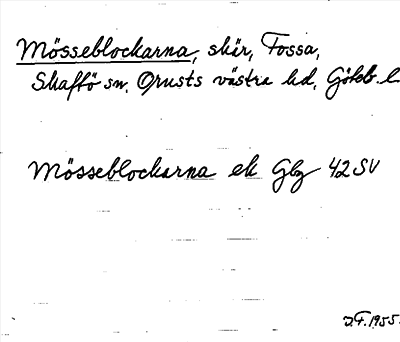 Mösseblockarna, skär, Fossa,
Skaftö sn. Orusts västra hd, Göteb. l.
Mösseblockarna ek Gbg 42 SV
J.F. 1955.